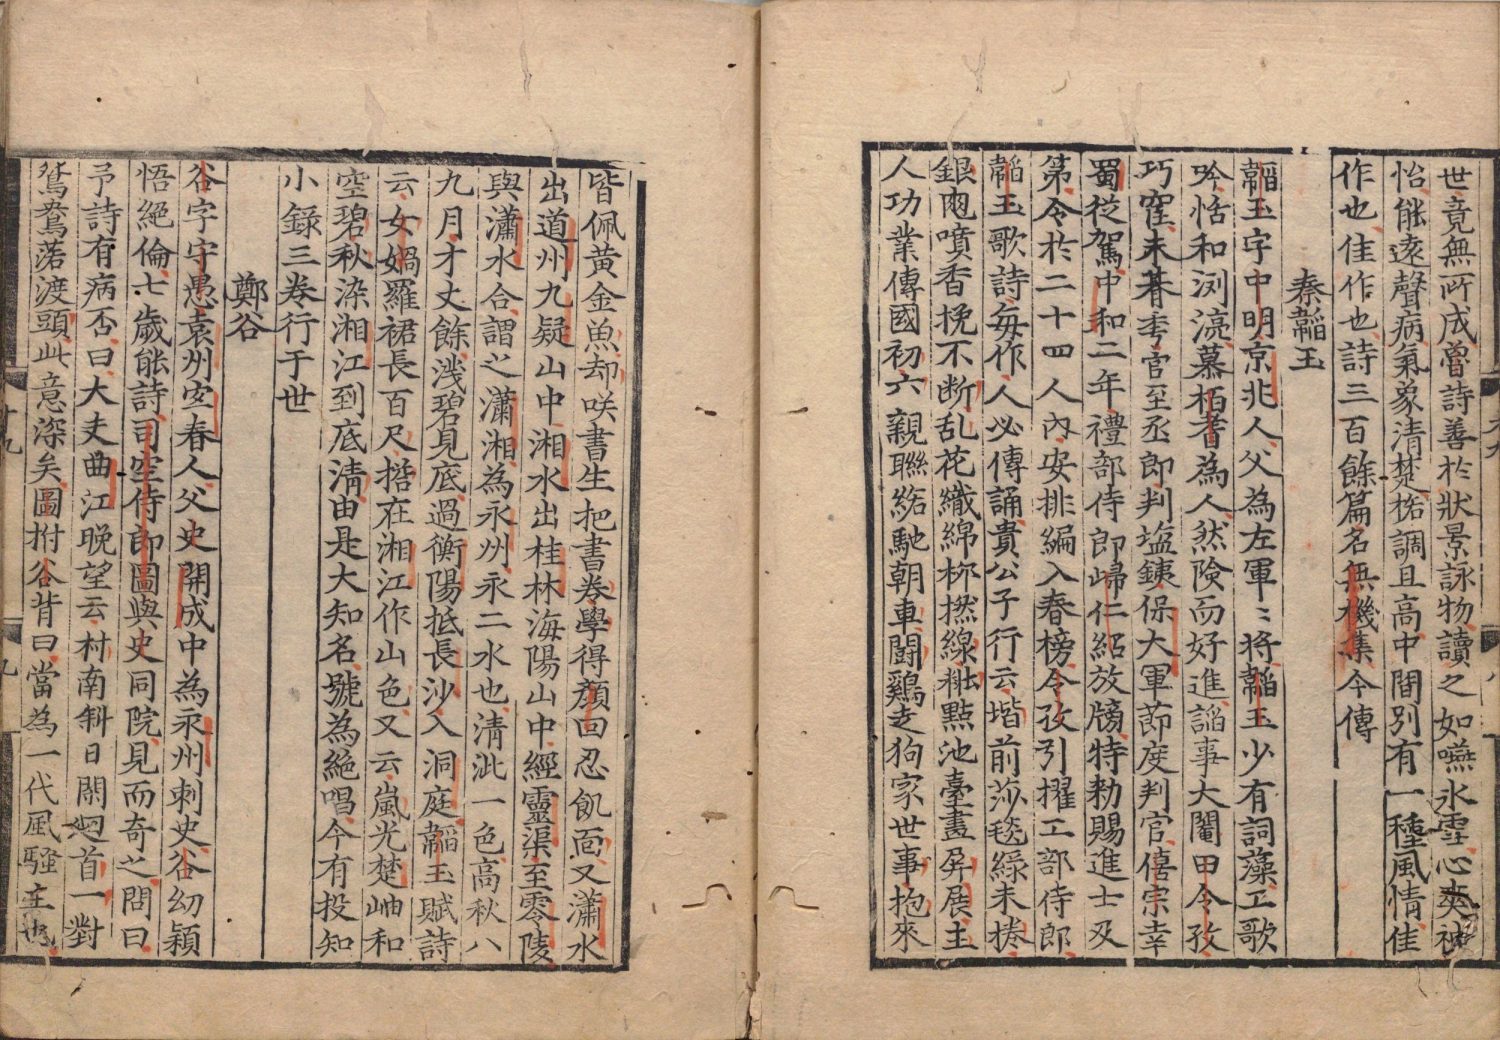 世竟無所成曾詩善於狀景詠物讀之如嚥氷雪心爽神
怡能遠聲病氣象清楚格調且高中間別有一種風情佳
作也佳作也詩三百餘篇名無機集今傳
秦韜玉
韜玉字中明京兆人父為左軍〻將韜玉少有詞藻工歌
吟恬和浏湸慕栢耆為人然險而好進謟事大閹田令孜
巧宦未朞秊官至丞郎判塩銕保大軍節度判官僖宗幸
蜀從駕中和二年禮部侍郎歸仁紹放牓特勑賜進士及
第令於二十四人內安排編入春榜令孜引擢工部侍郎
韜玉歌詩每作人必傳誦貴公子行云堦前莎毯綠未捲
銀𤬪噴香挽不断乱花織綿栁撚線粧點池臺畫屏展主
人功業傳國初六親聯絡馳朝車闘鷄走狗家世事抱來
皆佩黃金魚却咲書生把書卷學得顏回忍飢面又瀟水
出道州九疑山中湘水出桂林海陽山中經靈渠至零陵
與瀟水合謂之瀟湘為永州永二水也清泚一色高秋八
九月才丈餘淺碧見底過衡陽抵長沙入洞庭韜玉賦詩
云女媧羅裙長百尺搭在湘江作山色又云嵐光楚岫和
空碧秋染湘江到底清由是大知名號為絕唱今有投知
小錄三卷行于世
鄭谷
谷字守愚袁州宜春人父史開成中為永州刺史谷幼穎
悟絕倫七歲能詩司空侍郎圖與史同院見而奇之問曰
予詩有病否曰大夫曲江晚望云村南斜日閑迴首一對
鴛鴦落渡頭此意深矣圖拊谷背曰當為一代風騷主也